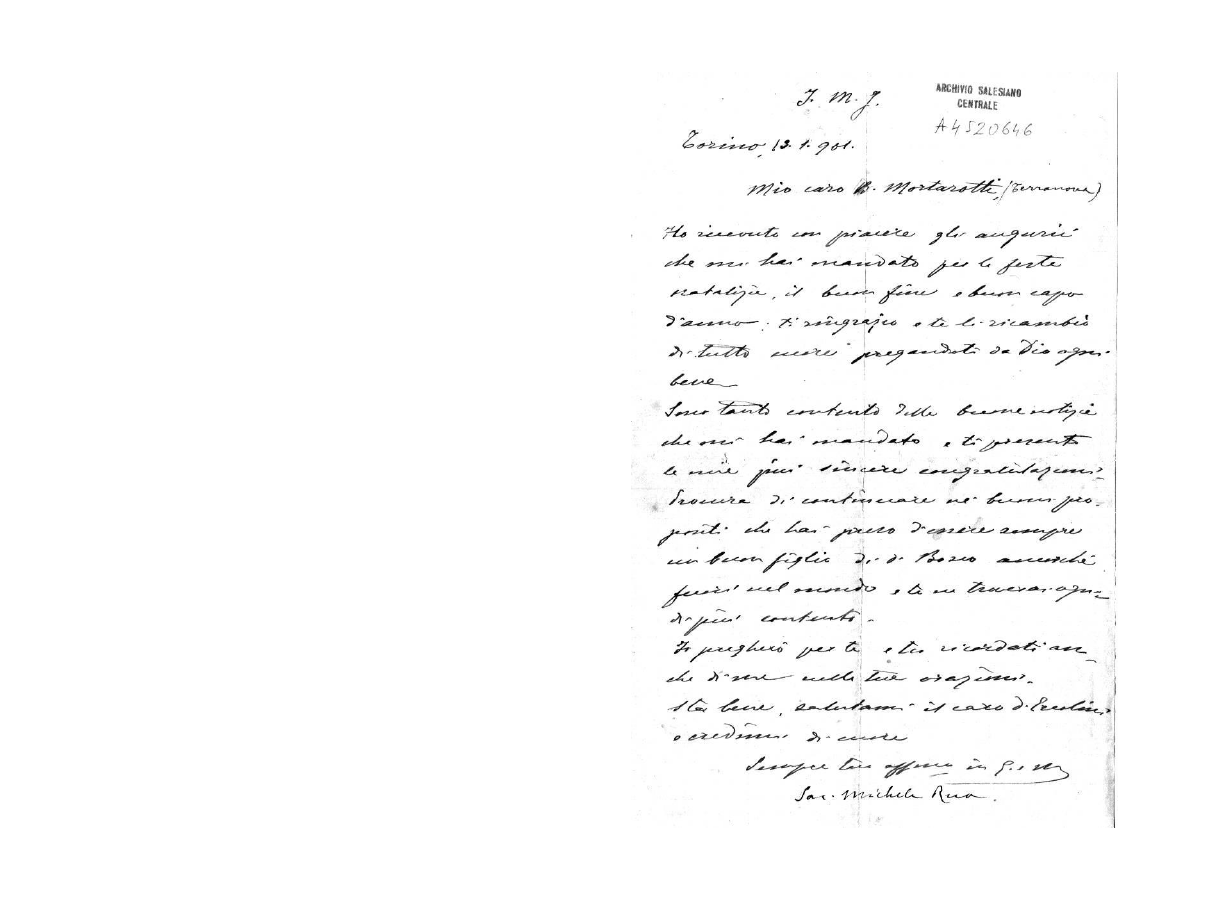 J. M. J.
ARCHIVIO SALESIANO
CENTRALE
A4520646
Torino, 13. 1. 901.
Mio caro D. Mortarotti, (Terranova)
Ho ricevuto con piacere gli augurii
che mi hai mandato per le feste
natalizie, il buon fine e buon capo
d'anno: ti ringrazio e te li ricambio
di tutto cuore pregandoti da Dio ogni
bene
Sono tanto contento delle buone notizie
che mi hai mandato e ti presento
le mie più sincere congratulazioni.
Procura di continuare nei buoni pro-
positi che hai preso d'essere sempre
un buon figlio di D. Bosco ancorchè
fuori nel mondo e te ne troverai ogni
dì più contento.
Io pregherò per te e tu ricordati an-
che di me nelle tue orazioni.
Sta bene, salutami il caro D. Ercolini
e credimi di cuore
Sempre tuo affmo in G. e M.
Sac. Michele Rua.